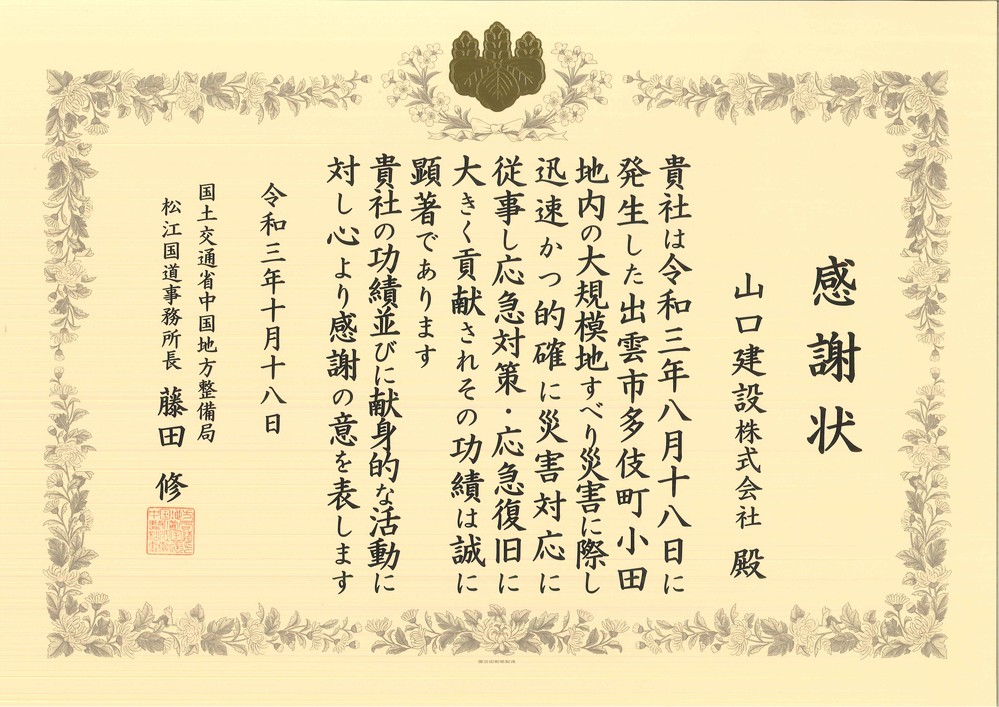 感謝状
山口建設株式会社 殿
貴社は令和三年八月十八日に
発生した出雲市多伎町小田
地内の大規模地すべり災害に際し
迅速かつ的確に災害対応に
従事し応急対策・応急復旧に
大きく貢献されその功績は誠に
顕著であります
貴社の功績並びに献身的な活動に
対し心より感謝の意を表します
令和三年十月十八日
国土交通省中国地方整備局
松江国道事務所長 藤田 修